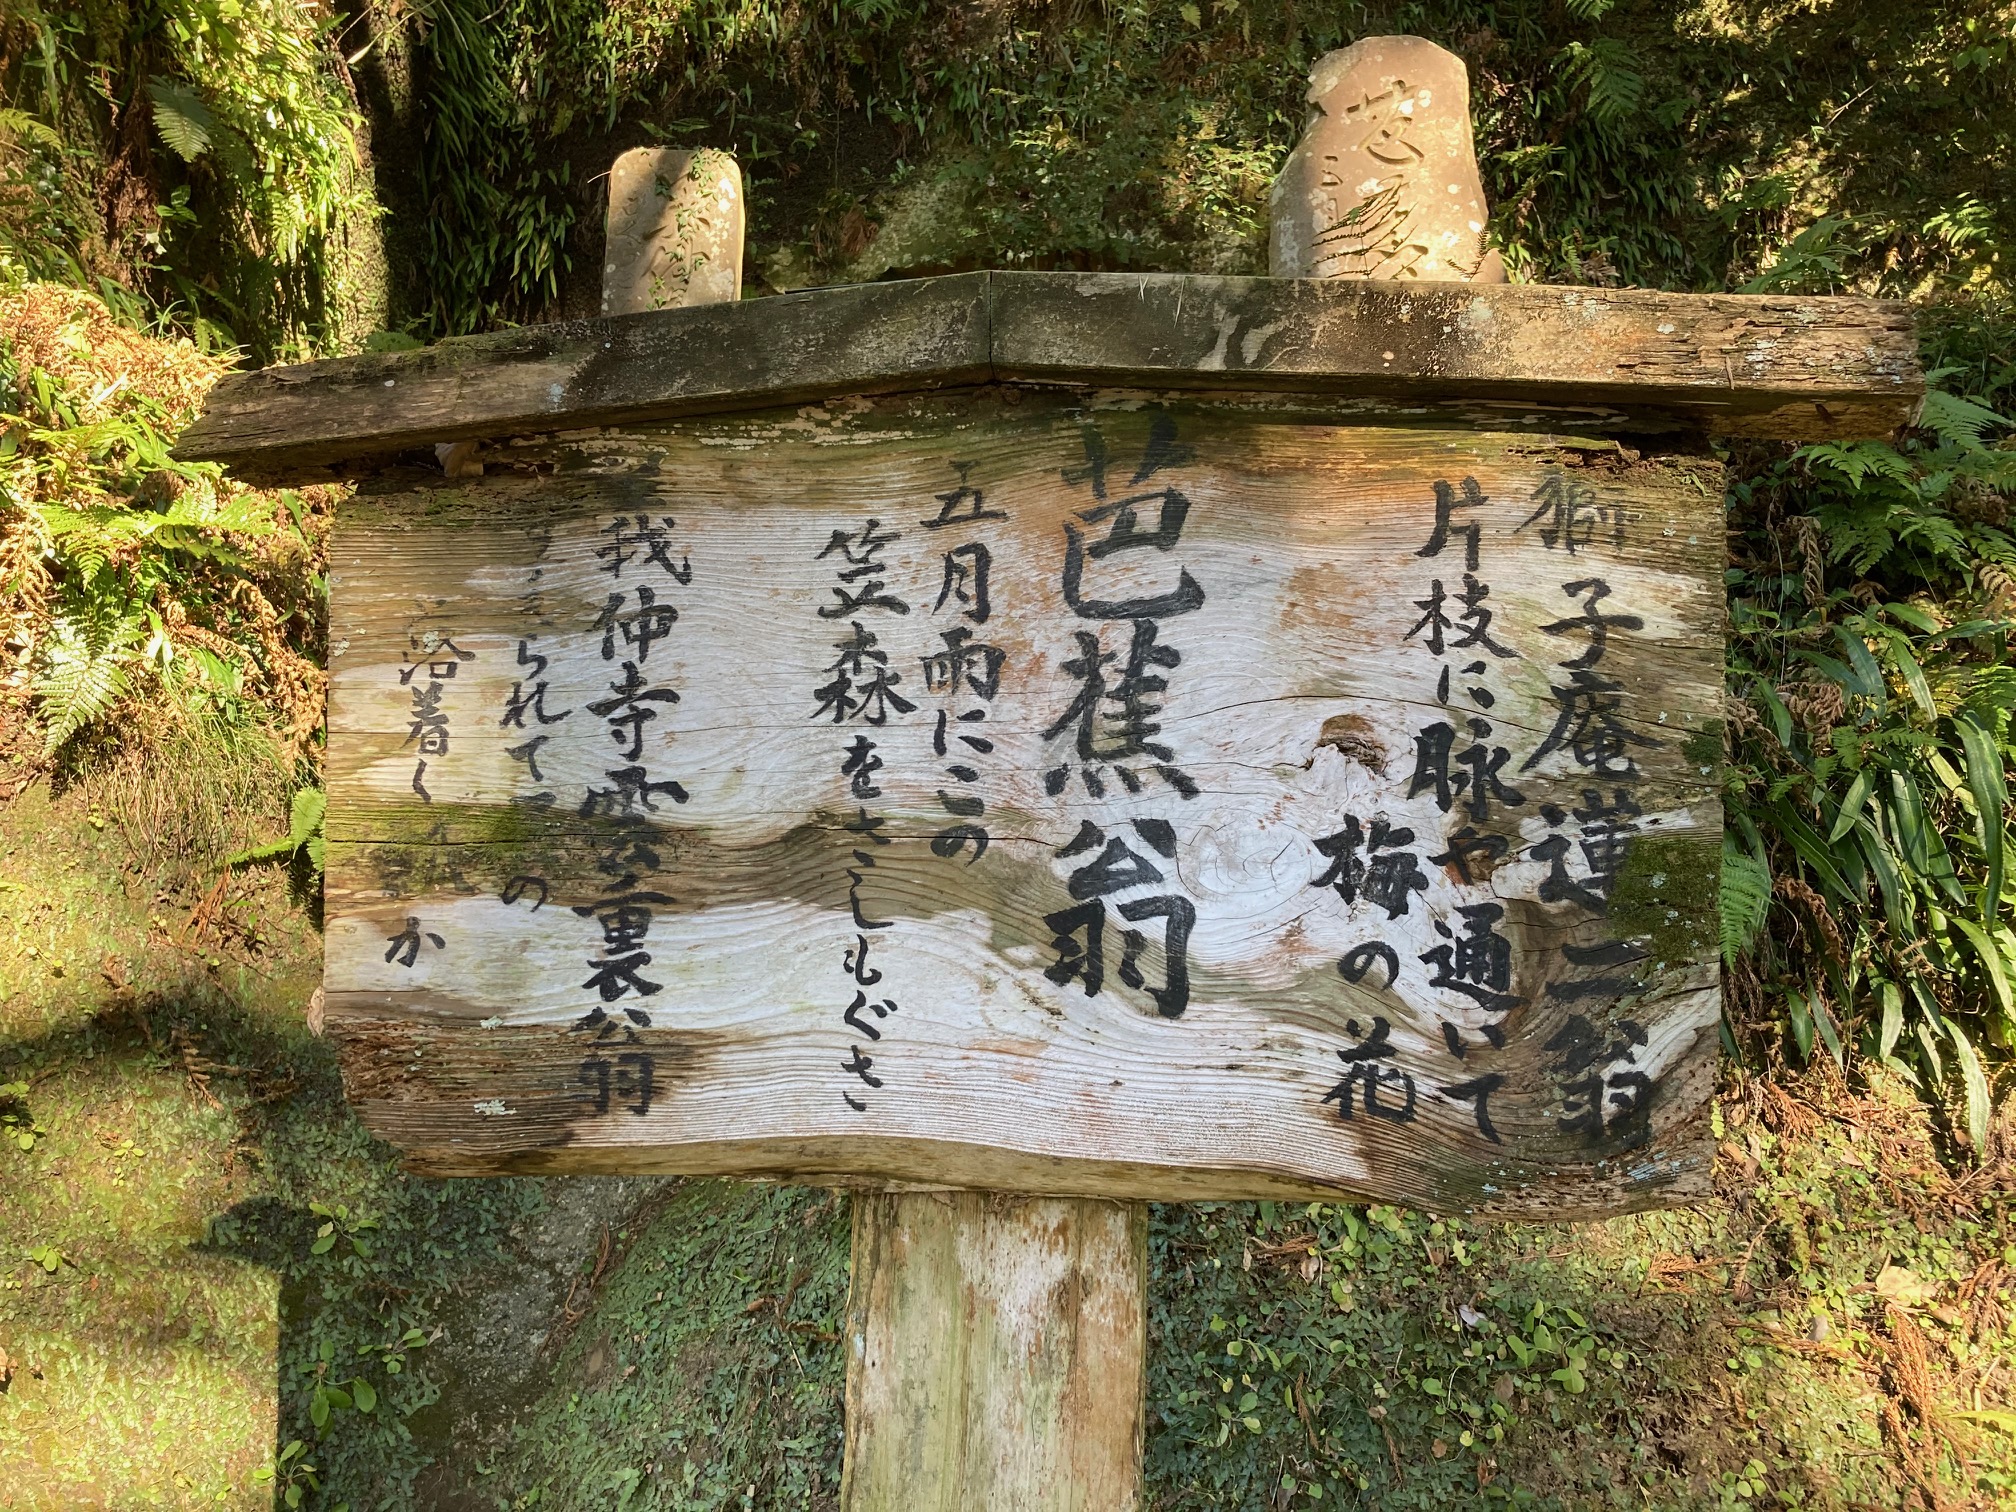 獅子庵蓮二翁
片枝に脉や通いて
梅の花
芭蕉翁
五月雨にこの
笠森をさしもぐさ
義仲寺雲裏翁
られて
の
浴着く
か
芭蕉